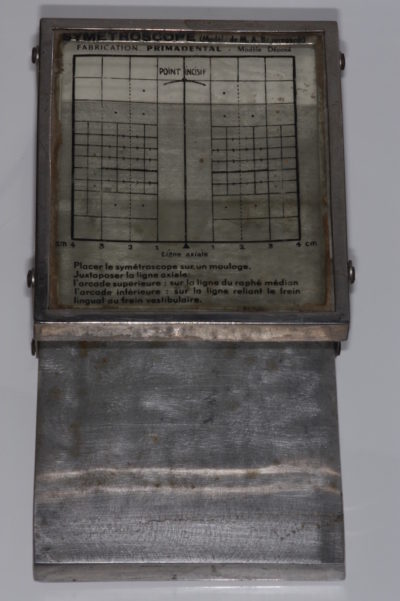 SYMETROSCOPE (Modèle de M. A.
FABRICATION PRIMADENTAL - Modèle Déposé
POINT INCISIF
cm 4 3 2 1 1 2 3 4 cm
Ligne axiale
Placer le symétroscope sur un moulage.
Juxtaposer la ligne axiale:
l'arcade supérieure : sur la ligne du raphé médian
l'arcade inférieure : sur la ligne reliant le frein
lingual au frein vestibulaire.